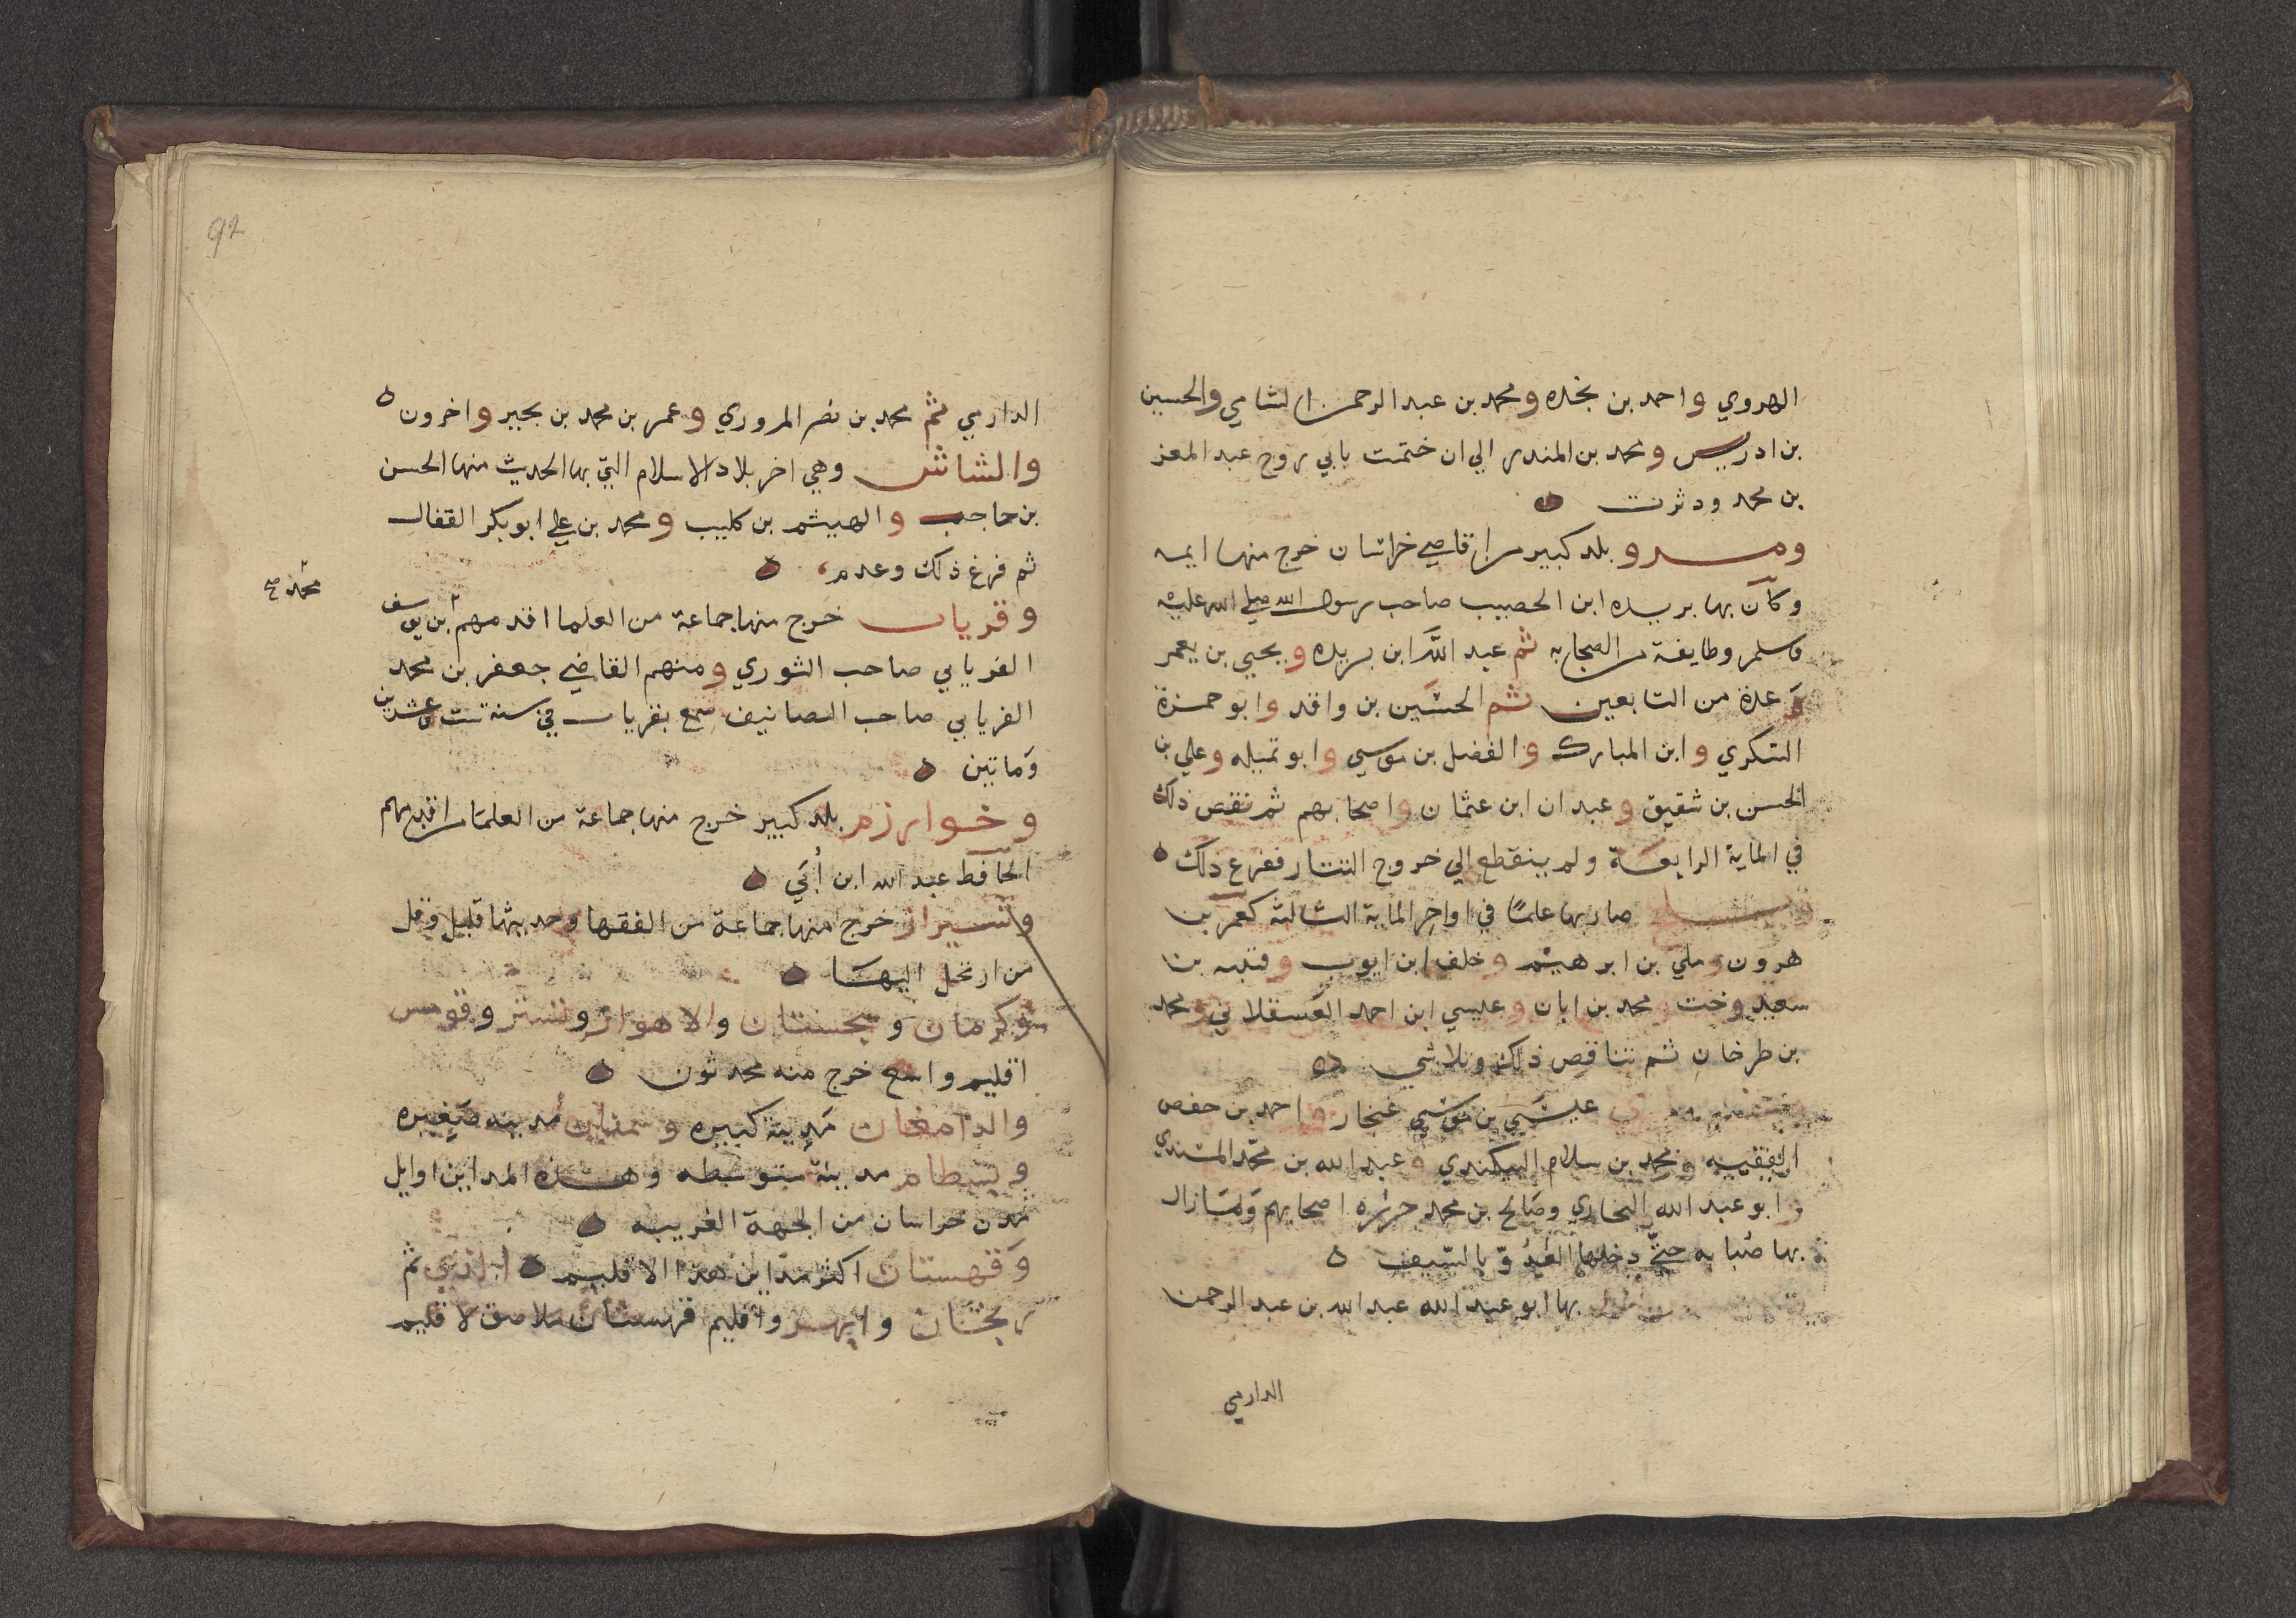 الهروي واحمد بن نجده ومحمد بن عبد الرحمن الشامي والحسين
بن ادريس ومحمد بن المنذر الي ان ختمت بابي روح عبد المعز
بن محمد ودثرت ٥
ومرو بلد كبير من اقاصي خراسان خرج منها ايمه
وكان بها بريده ابن الحصيب صاحب رسول الله صلي الله عليه
وسلم وطايفة من الصحابه ثم عبد الله ابن بريده ويحيي بن يعمر
وعدة من التابعين ثم الحسين بن واقد وابو حمزة
السكري وابن المبارك والفضل بن موسي وابو تميله وعلي بن
الحسن بن شقيق وعبدان ابن عثمان واصحابهم ثم نقص ذلك
في الماية الرابعة ولم ينقطع الي خروج التتار ففرغ ذلك ٥
صار بها علما في اواخر الماية الثالثة كعمر بن
هرون وملي بن ابرهيم وخلف ابن ايوب وقتيبه بن
سعيد وخت ومحمد بن ابان وعيسي ابن احمد العسقلاني ومحمد
بن طرخان ثم تناقص ذلك وتلاشي ٥٥
عيسي بن موسي غنجار واحمد بن حفص
الفقيه ومحمد بن سلام البيكندي وعبد الله بن محمد المسندي
وابو عبد الله البخاري وصالح بن محمد جزره اصحابهم وما زال
بها صبابه حتي دخلها العدو بالسيف ٥
بها ابو عبد الله عبد الله بن عبد الرحمن
الدارمي
92
الدارمي ثم محمد بن نصر المروزي وعمر بن محمد بن بجير واخرون ٥
والشاش وهي اخر بلاد الاسلام التي بها الحديث منها الحسن
بن حاجب والهيثم بن كليب ومحمد بن علي ابو بكر القفال
ثم فرغ ذلك وعدم ٥
وفرياب خرج منها جماعة من العلما اقدمهم بن يوسف
محمد صح
الفريابي صاحب الثوري ومنهم القاضي جعفر بن محمد
الفريابي صاحب التصانيف سمع بفرياب في سنة ست وعشرين
وماتين ٥
وخوارزم بلد كبير خرج منها جماعة من العلما من اقدمهم
الحافظ عبد الله ابن أبي ٥
وشيراز خرج منها جماعة من الفقها وحديثها قليل وقل
من ارتحل اليها ٥
وكرمان وسجستان والاهواز وتستر وقومس
اقليم واسع خرج منه محدثون ٥
والدامغان مدينة كبيره وسمنان مدينه صغيره
وبسطام مدينة متوسطه وهذه المداين اوايل
مدن خراسان من الجهة الغربيه ٥
وقهستان اكثر مداين هذا الاقليم ٥ الري ثم
زنجان وابهر واقليم قهستان ملاصق لاقليم